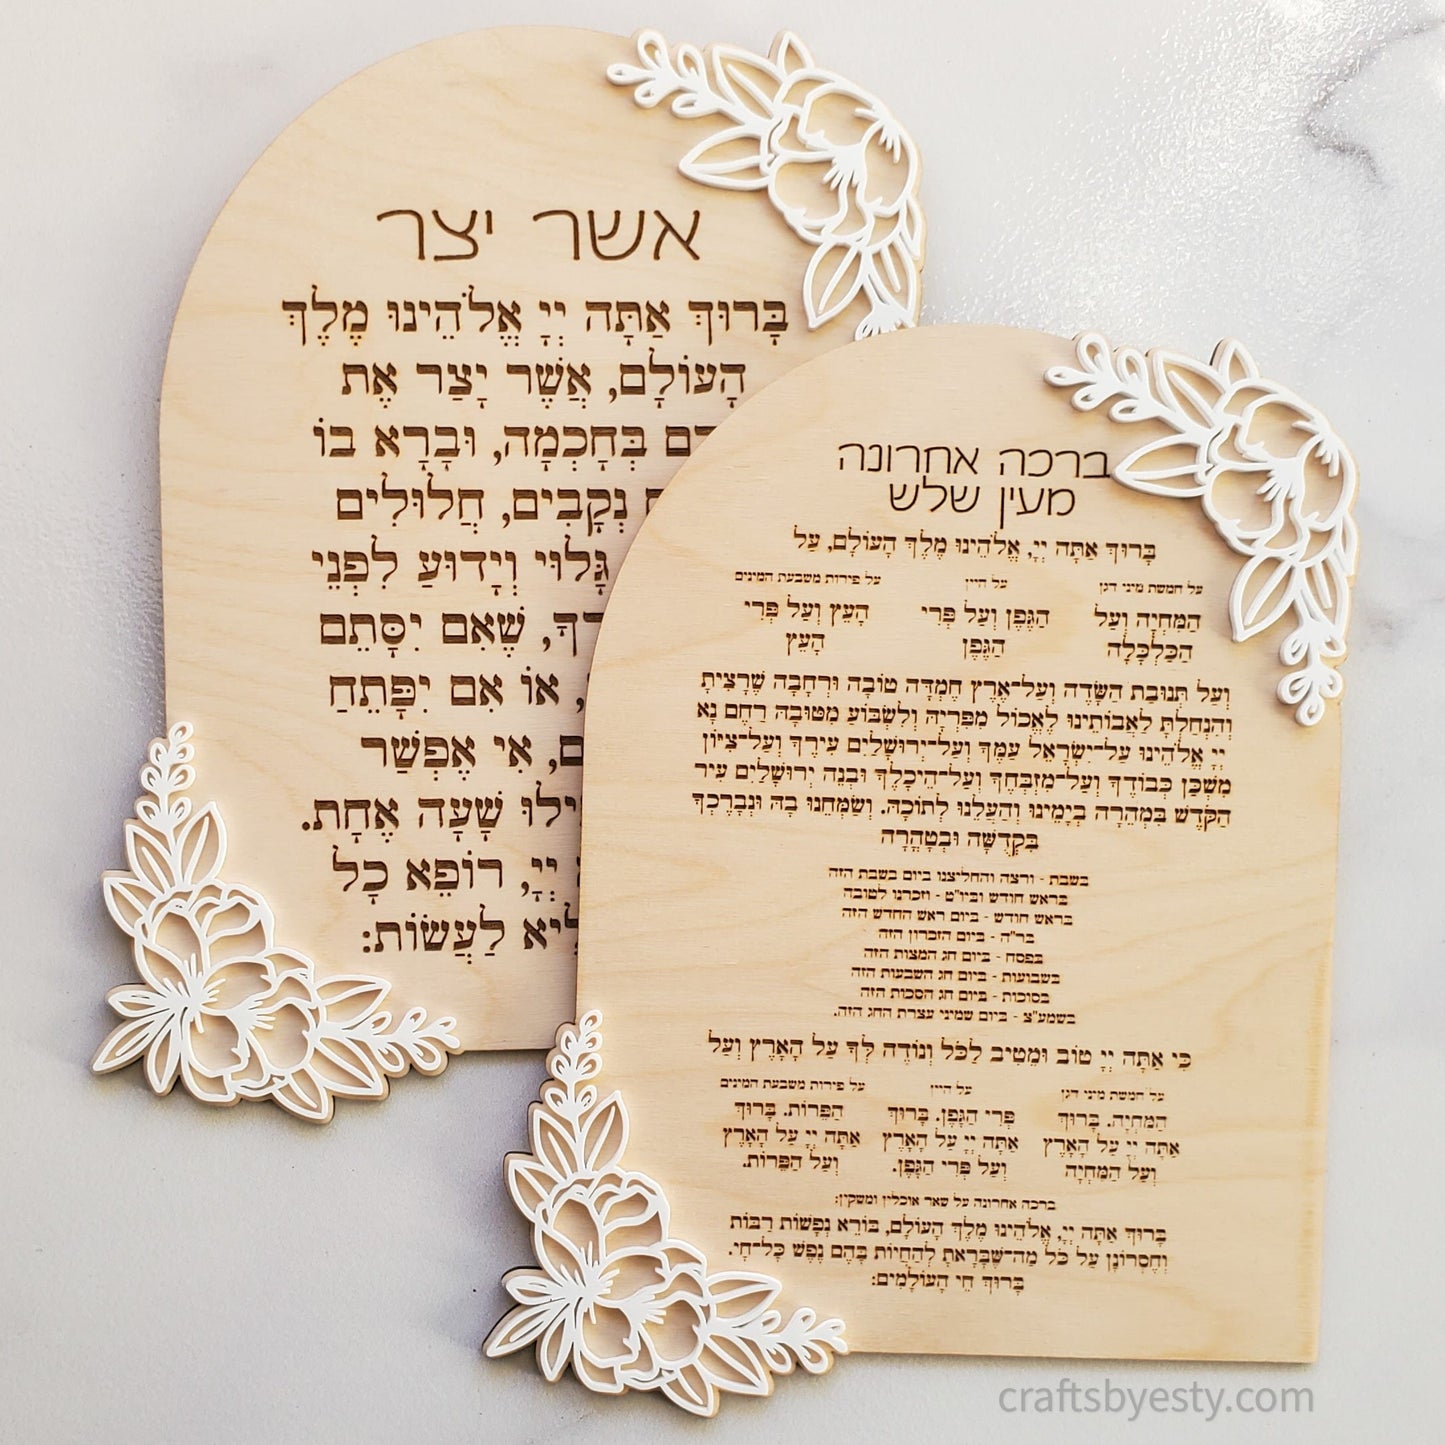 אשר יצר
בָּרוּךְ אַתָּה יְיָ אֱלֹהֵינוּ מֶלֶךְ
הָעוֹלָם, אֲשֶׁר יָצַר אֶת
בְּחָכְמָה, וּבָרָא בוֹ
נְקָבִים, חֲלוּלִים
גָּלוּי וְיָדוּעַ לִפְנֵי
שֶׁאִם יִסָּתֵם
אוֹ אִם יִפָּתֵחַ
אִי אֶפְשַׁר
שָׁעָה אֶחָת.
יְיָ, רוֹפֵא כָל
לַעֲשׂוֹת:
ברכה אחרונה
מעין שלש
בָּרוּךְ אַתָּה יְיָ, אֱלֹהֵינוּ מֶלֶךְ הָעוֹלָם, עַל
על חמשת מיני דגן על היין על פירות משבעת המינים
הַמִּחְיָה וְעַל הַגֶּפֶן וְעַל פְּרִי הָעֵץ וְעַל פְּרִי
הַכַּלְכָּלָה הַגֶּפֶן הָעֵץ
וְעַל תְּנוּבַת הַשָּׂדֶה וְעַל־אֶרֶץ חֶמְדָּה טוֹבָה וּרְחָבָה שֶׁרָצִיתָ
וְהִנְחַלְתָּ לַאֲבוֹתֵינוּ לֶאֱכוֹל מִפִּרְיָהּ וְלִשְׂבּוֹעַ מִטּוּבָהּ רַחֶם נָא
יְיָ אֱלֹהֵינוּ עַל־יִשְׂרָאֵל עַמֶּךָ וְעַל־יְרוּשָׁלַיִם עִירֶךָ וְעַל־צִיּוֹן
מִשְׁכַּן כְּבוֹדֶךָ וְעַל־מִזְבְּחֶךָ וְעַל־הֵיכָלֶךָ וּבְנֵה יְרוּשָׁלַיִם עִיר
הַקֹּדֶשׁ בִּמְהֵרָה בְיָמֵינוּ וְהַעֲלֵנוּ לְתוֹכָהּ. וְשַׂמְּחֵנוּ בָהּ וּנְבָרֶכְךָ
בִּקְדֻשָּׁה וּבְטָהֳרָה
בשבת - ורצה והחליצנו ביום בשבת הזה
בראש חודש וביו"ט - וזכרנו לטובה
בראש חודש - ביום ראש החדש הזה
בר"ה - ביום הזכרון הזה
בפסח - ביום חג המצות הזה
בשבועות - ביום חג השבעות הזה
בסוכות - ביום חג הסכות הזה
בשמע"צ - ביום שמיני עצרת החג הזה.
כִּי אַתָּה יְיָ טוֹב וּמֵטִיב לַכֹּל וְנוֹדֶה לְּךָ עַל הָאָרֶץ וְעַל
על חמשת מיני דגן על היין על פירות משבעת המינים
הַמִּחְיָה. בָּרוּךְ פְּרִי הַגָּפֶן. בָּרוּךְ הַפֵּרוֹת. בָּרוּךְ
אַתָּה יְיָ עַל הָאָרֶץ אַתָּה יְיָ עַל הָאָרֶץ אַתָּה יְיָ עַל הָאָרֶץ
וְעַל הַמִּחְיָה וְעַל פְּרִי הַגָּפֶן. וְעַל הַפֵּרוֹת.
ברכה אחרונה על שאר אוכלין ומשקין:
בָּרוּךְ אַתָּה יְיָ, אֱלֹהֵינוּ מֶלֶךְ הָעוֹלָם, בּוֹרֵא נְפָשׁוֹת רַבּוֹת
וְחֶסְרוֹנָן עַל כֹּל מַה־שֶּׁבָּרָאתָ לְהַחֲיוֹת בָּהֶם נֶפֶשׁ כָּל־חָי.
בָּרוּךְ חֵי הָעוֹלָמִים:
craftsbyesty.com